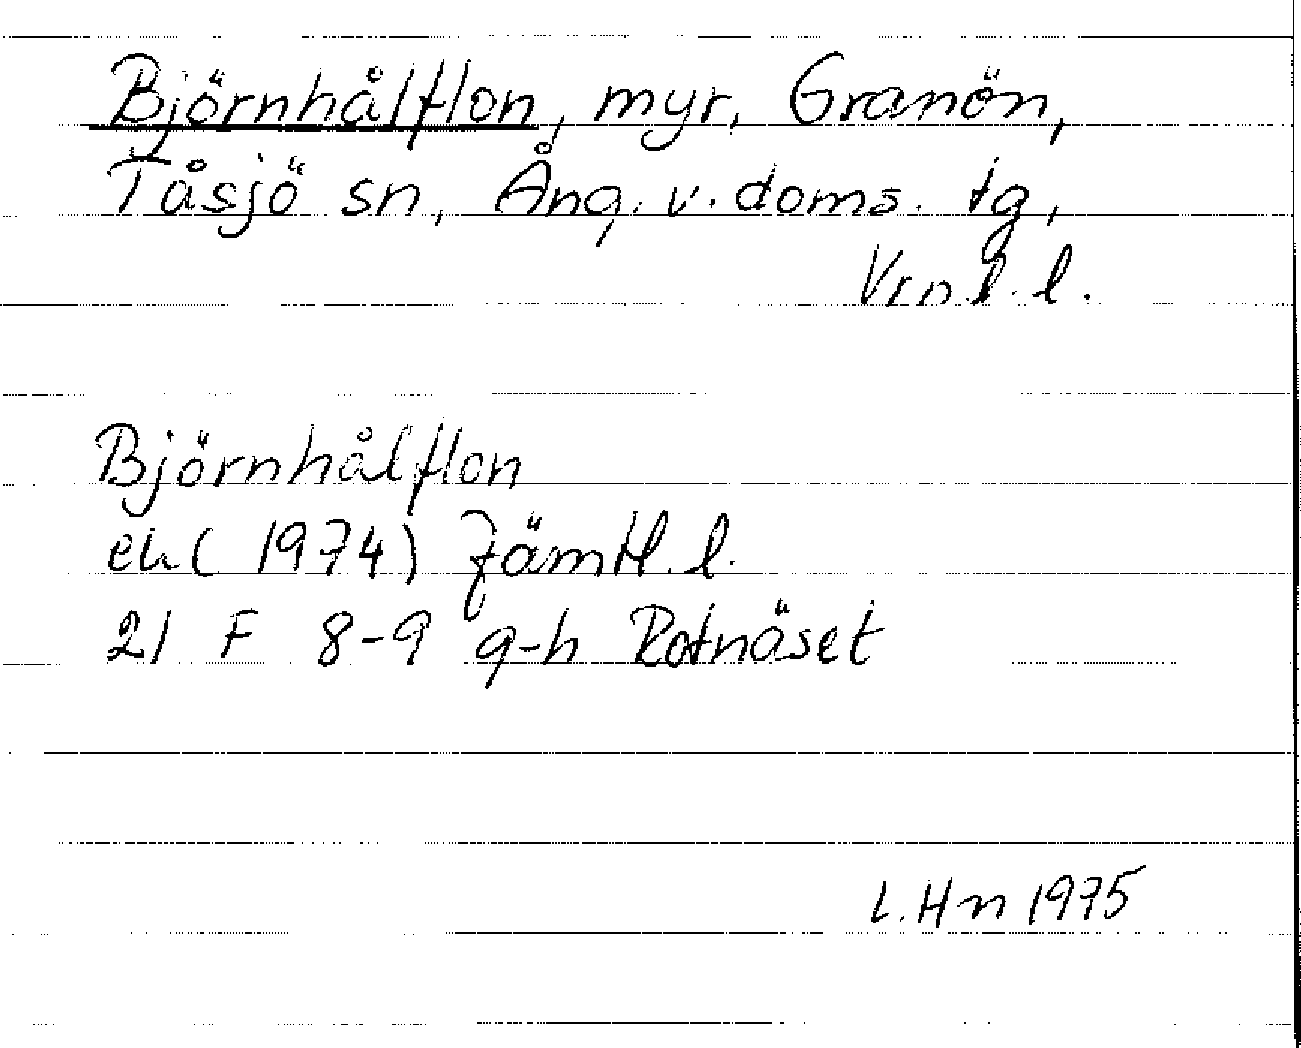 Björnhålflon, myr, Granön,
Tåsjö sn, Ång. v. doms. tg,
Vrnl.l.
Björnhålflon
ek (1974) Jämtl.l.
21 F 8-9 g-h Rotnäset
L.Hn 1975